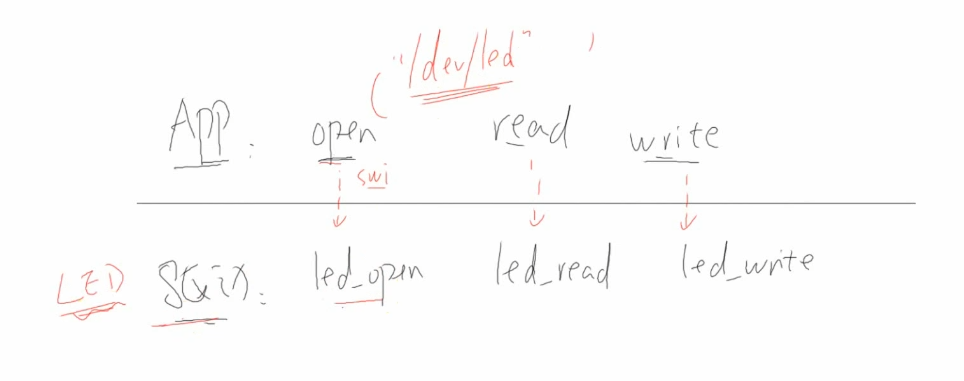 ("/dev/led" )
App: open read write
swi
LED : led_open led_read led_write